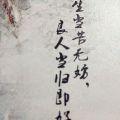 生当苦无妨、
良人当归即好